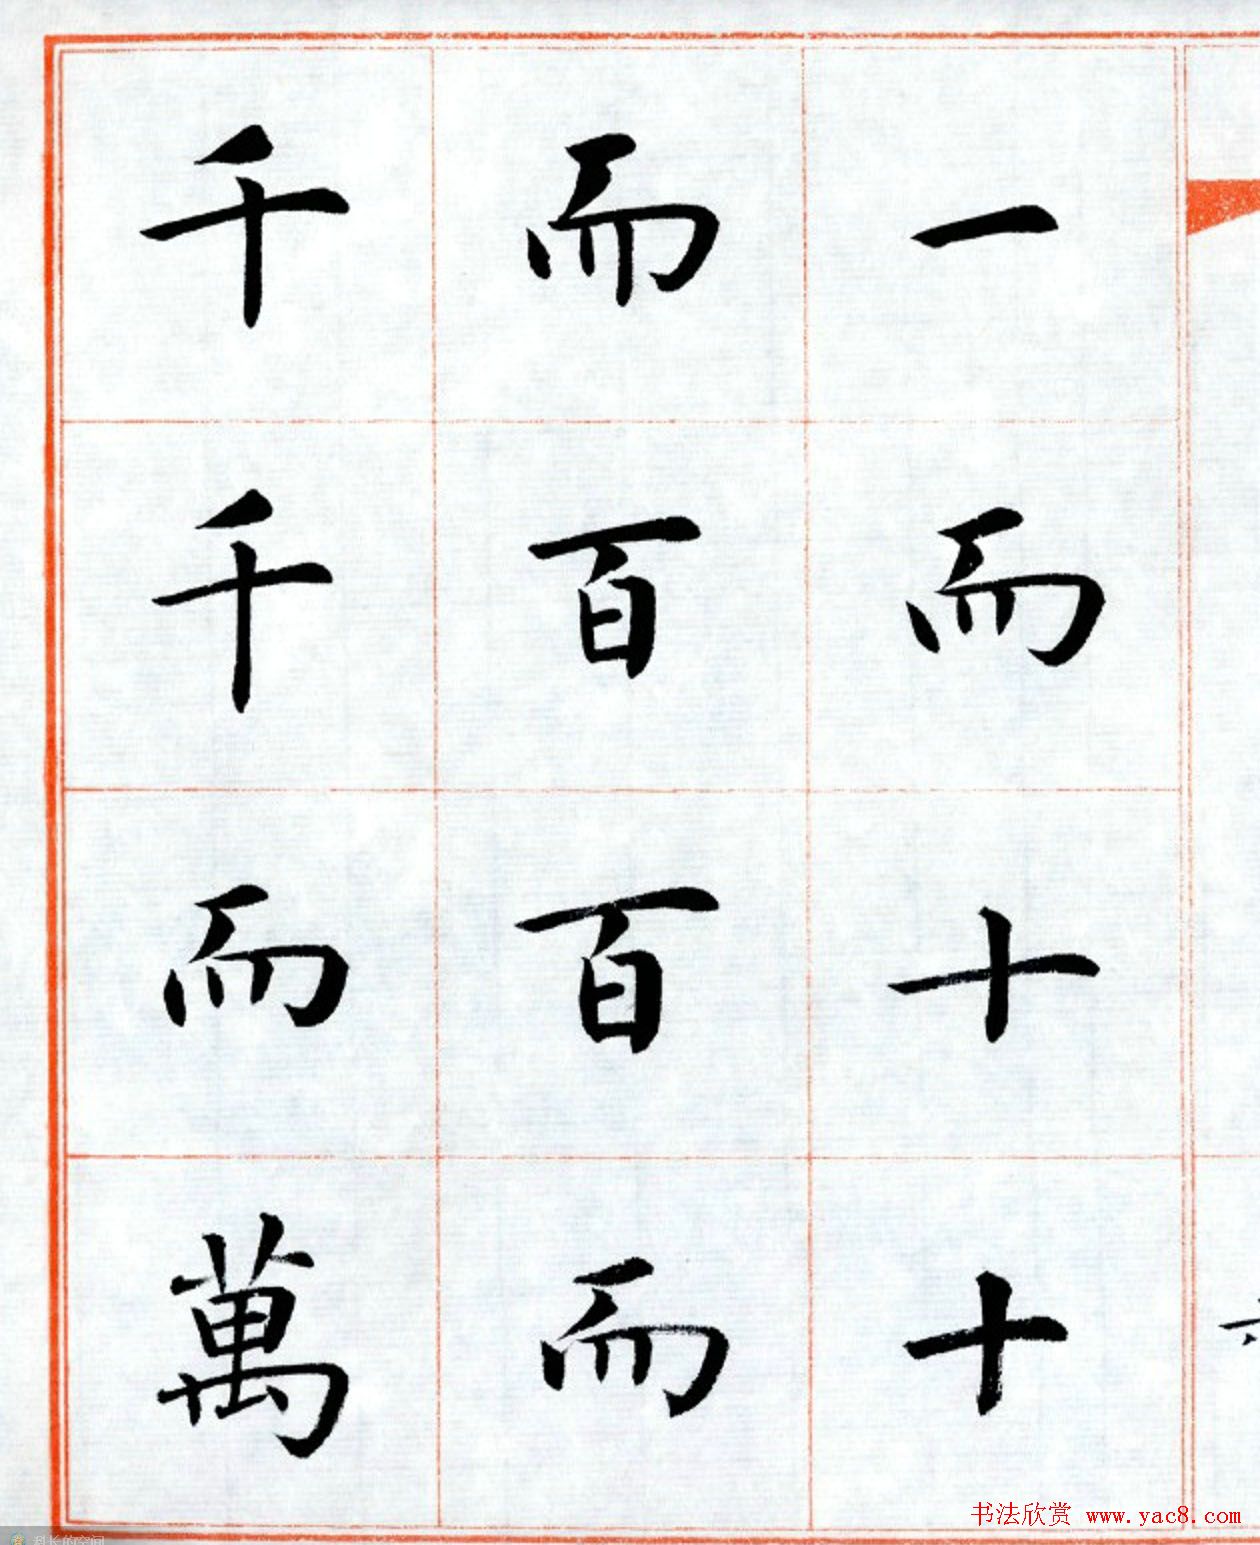 一而十十
而百百而
千千而萬
书法欣赏 www.yac8.com